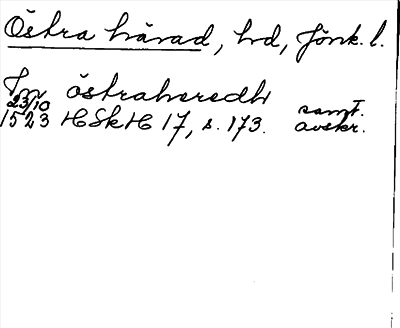 Östra härad, hd, Jönk. l.
Jm östraheredh
23/10 samt.
1523 HSkH 17, s. 173. avskr.